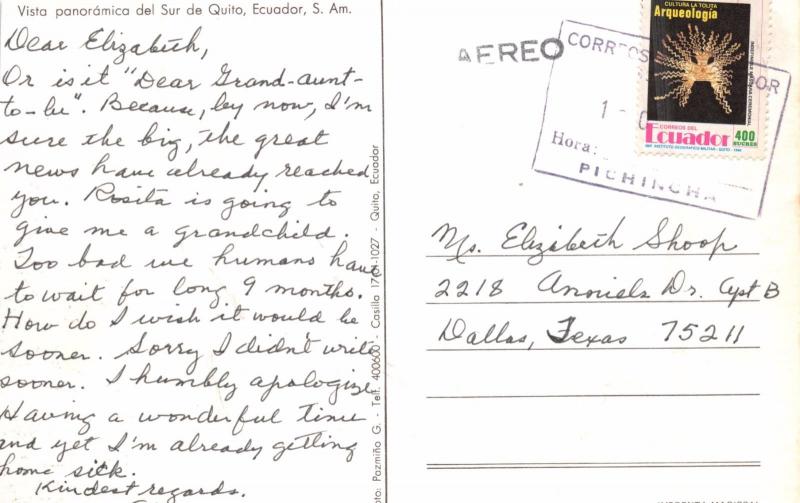 Vista panorámica del Sur de Quito, Ecuador, S. Am.
Dear Elizabeth,
Or is it "Dear Grand-aunt-
to-be". Because, by now, I'm
sure the big, the great
news have already reached
you. Rosita is going to
give me a grandchild.
Too bad we humans have
to wait for long 9 months.
How do I wish it would be
sooner. Sorry I didn't write
sooner. I humbly apologize
Having a wonderful time
and yet I'm already getting
home sick.
Kindest regards.
Pazmiño G. - Telf. 400600 - Casilla 1027 - Quito, Ecuador
AEREO
CORREOS
1 -
Hora:
PICHINCHA
CULTURA LA TOLITA
Arqueología
CORREOS DEL
Ecuador
400
SUCRES
Ms. Elizabeth Shoop
2218 Dr. Apt B
Dallas, Texas 75211